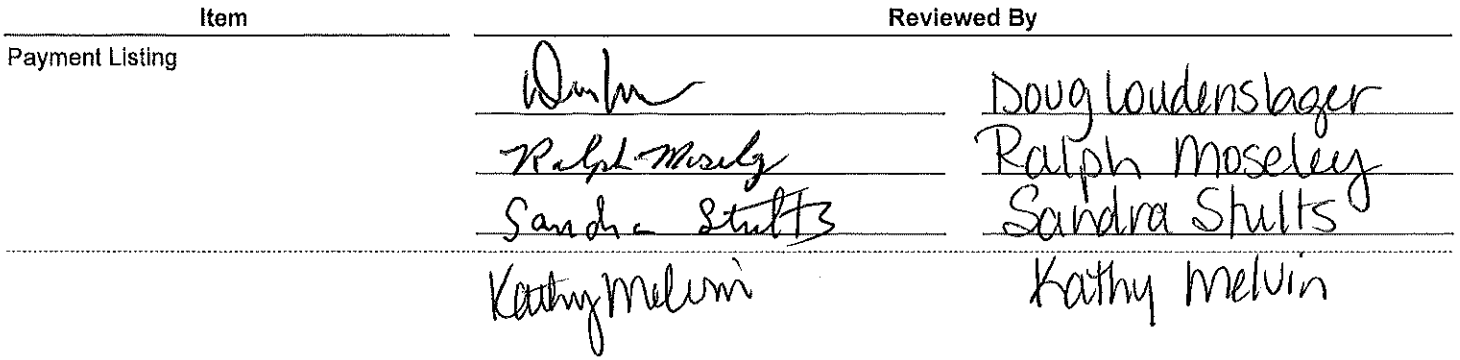 Item Reviewed By
Payment Listing
Doug Loudenslager
Ralph Moseley Ralph Moseley
Sandra Stults Sandra Stults
Kathy Melvin Kathy Melvin